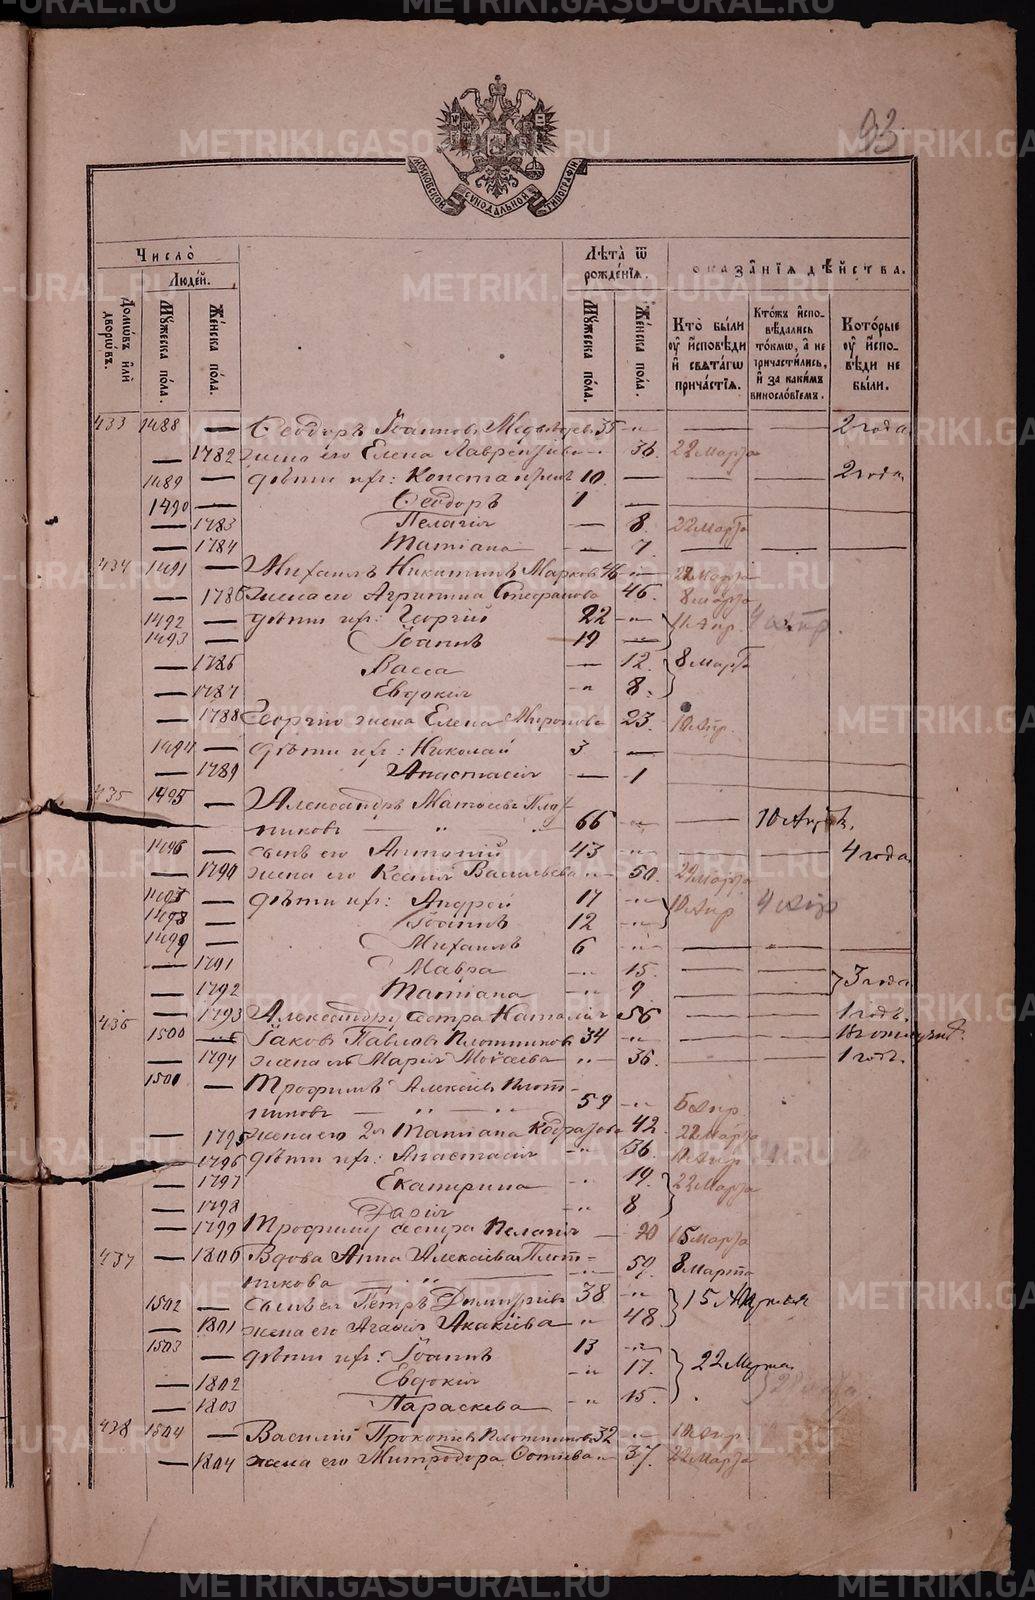 METRIKI.GASO-URAL.RU
93
МОСКОВСКОЙ СѴНОДАЛЬНОЙ ТИПОГРАФІИ
Число̀
Людей.
Домѡвъ или дворѡвъ.
Мꙋжеска пола.
Женска пола.
Лѣта ѿ рожденїѧ.
Мꙋжеска пола.
Женска пола.
ѡказанїѧ дѣйства.
Кто̀ были ᲂу҆ исповѣди и свѧтагѡ причастїѧ.
Ктожъ исповѣдались токмѡ, а не причастились, и за какимъ винословїемъ.
Которые ᲂу҆ исповѣди не были.
433 1488 — Ѳеодоръ Іоанновъ Медведевъ 35 2 года
— 1782 жена его Елена Лаврентіева 36 22 Марта
1489 — дѣти ихъ: Константинъ 10 2 года
1490 — Ѳеодоръ 1
— 1783 Пелагія — 8 22 Марта
— 1784 Татіана — 7
434 1491 — Михаилъ Никитинъ Марков 46 22 Марта
— 1785 жена его Агриппина Стефанова 46. 8 Марта
1492 — дѣти ихъ: Георгій 22 11 Апр. 4 апр.
1493 — Іоаннъ 19
— 1786 Васса — 12. 8 Март
— 1787 Евдокія 8.
— 1788 Георгію жена Елена Миронова 23. 10 Апр.
1494 — дѣти ихъ: Николай 3 —
— 1789 Анастасія — 1
435 1495 — Александръ Матѳіевъ Плот
никовъ 66 10 Апрѣл.
1496 — сынъ его Антоній 43 4 года
— 1790 жена его Ксенія Васильева 50. 22 Марта
1497 — дѣти ихъ: Андрей 17 10 Апр 4 апр
1498 — Іоаннъ 12
1499 — Михаилъ 6
— 1791 Мавра 15. 3 года
— 1792 Татіана 9
— 1793 Александру сестра Наталія 56 1 годъ.
436 1500 — Іаковъ Павловъ Плотников 34
— 1794 жена его Марія Моѵсеева 36. 1 годъ.
1501 — Трофимъ Алексіевъ Плот-
никовъ 59 5 Апр.
— 1795 жена его 2я Татіана Кодратова 42. 22 Марта
— 1796 дѣти ихъ: Анастасія 36. 11 Апр
— 1797 Екатерина 19. 22 Марта
— 1798 Дарія 8
— 1799 Трофиму сестра Пелагія 15 Марта
437 — 1800 Вдова Анна Алексіева Плот-
никова 59. 8 Марта
1502 — сынъ ея Петръ Димитріевъ 38 15 Апреля
— 1801 жена его Агафія Акакіева 48.
1503 — дѣти ихъ: Іоаннъ 13 22 Марта
— 1802 Евдокія 17.
— 1803 Параскева 15.
438 1504 — Василій Прокопьевъ Плотников 32 10 Апр.
— 1804 жена его Митродора Сотіева 37. 22 Марта